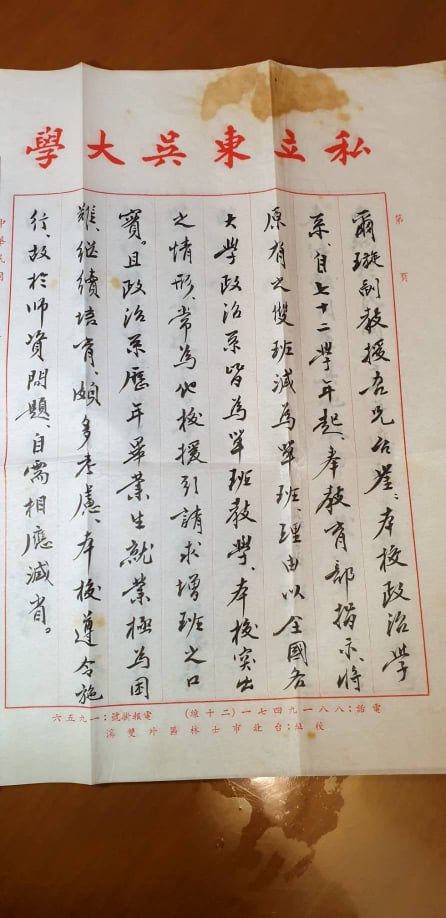 私立東吳大學
第 頁
爾璇副教授吾兄台鑒:本校政治學
系、自七十二學年起、奉教育部指示、將
原有之雙班減為單班、理由以全國各
大學政治系皆為單班教學、本校突出
之情形、常為他校援引請求增班之口
實。且政治系歷年畢業生就業極為困
難、繼續培育、頗多考慮、本校遵令施
行、故於師資問題、自需相應減省。
中華民國
電話:八八一九四七一(二十線) 電報掛號:一九五六
校址:台北市士林區外雙溪